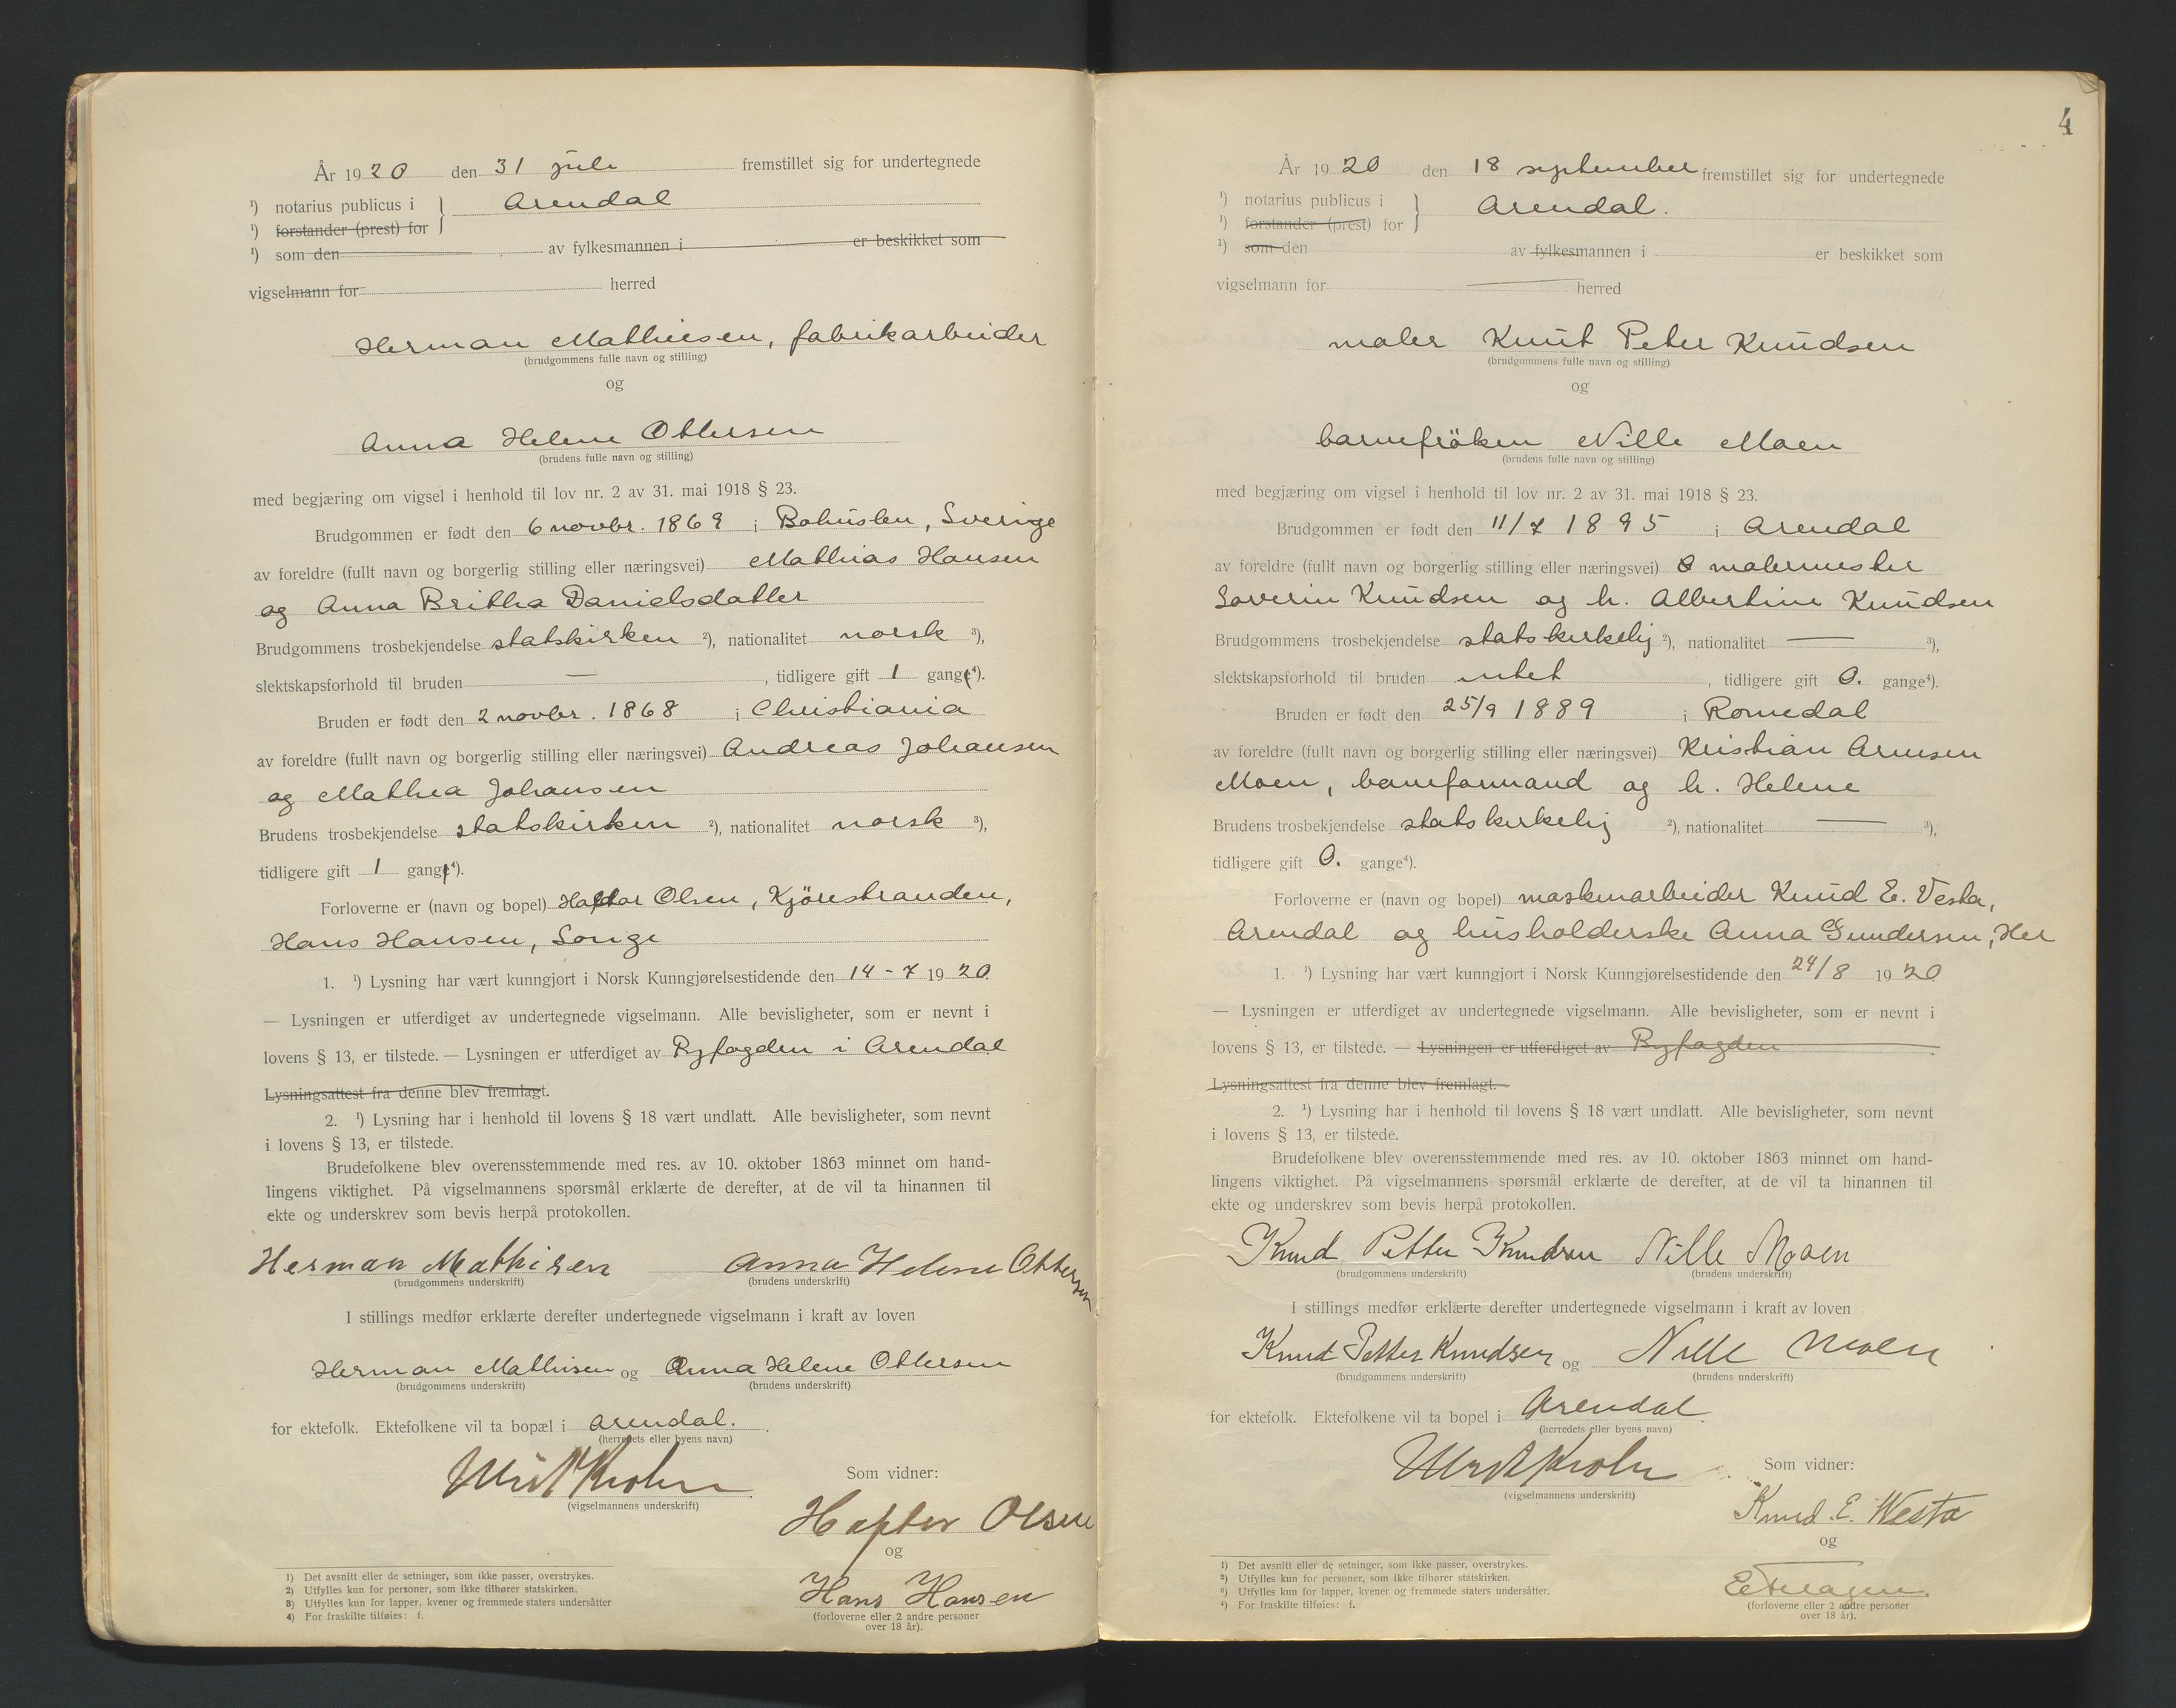 År 1920 den 31 juli fremstillet sig for undertegnede
¹) notarius publicus i Arendal
¹) forstander (prest) for
¹) som den av fylkesmannen i er beskikket som
vigselmann for herred
Herman Mathiesen, fabrikarbeider
(brudgommens fulle navn og stilling)
og
Anna Helene Ottersen
(brudens fulle navn og stilling)
med begjæring om vigsel i henhold til lov nr. 2 av 31. mai 1918 § 23.
Brudgommen er født den 6 novbr. 1869 i Bohuslen, Sverige
av foreldre (fullt navn og borgerlig stilling eller næringsvei) Mathias Hansen
og Anna Britha Danielsdatter
Brudgommens trosbekjendelse statskirken ²), nationalitet norsk ³),
slektskapsforhold til bruden — , tidligere gift 1 gang⁴).
Bruden er født den 2 novbr. 1868 i Christiania
av foreldre (fullt navn og borgerlig stilling eller næringsvei) Andreas Johansen
og Mathea Johansen
Brudens trosbekjendelse statskirken ²), nationalitet norsk ³),
tidligere gift 1 gang⁴).
Forloverne er (navn og bopel) Olsen, Kjörestranden,
Hans Hansen, Songe
1. ¹) Lysning har vært kunngjort i Norsk Kunngjørelsestidende den 14 - 7 1920.
— Lysningen er utferdiget av undertegnede vigselmann. Alle bevisligheter, som er nevnt i
lovens § 13, er tilstede. — Lysningen er utferdiget av Byfogden i Arendal
Lysningsattest fra denne blev fremlagt.
2. ¹) Lysning har i henhold til lovens § 18 vært undlatt. Alle bevisligheter, som nevnt
i lovens § 13, er tilstede.
Brudefolkene blev overensstemmende med res. av 10. oktober 1863 minnet om hand-
lingens viktighet. På vigselmannens spørsmål erklærte de derefter, at de vil ta hinannen til
ekte og underskrev som bevis herpå protokollen.
Herman Mathisen Anna Helene Ottersen
(brudgommens underskrift) (brudens underskrift)
I stillings medfør erklærte derefter undertegnede vigselmann i kraft av loven
Herman Mathisen og Anna Helene Ottersen
(brudgommens underskrift) (brudens underskrift)
for ektefolk. Ektefolkene vil ta bopæl i Arendal.
(herredets eller byens navn)
Krohn
(vigselmannens underskrift)
Som vidner:
Hafter Olsen
og
Hans Hansen
(forloverne eller 2 andre personer
over 18 år).
1) Det avsnitt eller de setninger, som ikke passer, overstrykes.
2) Utfylles kun for personer, som ikke tilhører statskirken.
3) Utfylles kun for lapper, kvener og fremmede staters undersåtter
4) For fraskilte tilføies: f.
4
År 1920 den 18 september fremstillet sig for undertegnede
¹) notarius publicus i Arendal.
¹) forstander (prest) for
¹) som den av fylkesmannen i er beskikket som
vigselmann for herred
maler Knut Peter Knudsen
(brudgommens fulle navn og stilling)
og
barnefröken Nille Moen
(brudens fulle navn og stilling)
med begjæring om vigsel i henhold til lov nr. 2 av 31. mai 1918 § 23.
Brudgommen er født den 11/7 1895 i Arendal
av foreldre (fullt navn og borgerlig stilling eller næringsvei) malermester
Soverin Knudsen og h. Albertine Knudsen
Brudgommens trosbekjendelse statskirkelig ²), nationalitet — ³),
slektskapsforhold til bruden intet , tidligere gift 0. gange⁴).
Bruden er født den 25/9 1889 i Romedal
av foreldre (fullt navn og borgerlig stilling eller næringsvei) Kristian Arnesen
Moen, baneformand og h. Helene
Brudens trosbekjendelse statskirkelig ²), nationalitet — ³),
tidligere gift 0. gange⁴).
Forloverne er (navn og bopel) maskinarbeider Knud E. Vesta,
Arendal og husholderske Anna Gundersen, Her
1. ¹) Lysning har vært kunngjort i Norsk Kunngjørelsestidende den 24/8 1920
— Lysningen er utferdiget av undertegnede vigselmann. Alle bevisligheter, som er nevnt i
lovens § 13, er tilstede. — Lysningen er utferdiget av Byfogden .
Lysningsattest fra denne blev fremlagt.
2. ¹) Lysning har i henhold til lovens § 18 vært undlatt. Alle bevisligheter, som nevnt
i lovens § 13, er tilstede.
Brudefolkene blev overensstemmende med res. av 10. oktober 1863 minnet om hand-
lingens viktighet. På vigselmannens spørsmål erklærte de derefter, at de vil ta hinannen til
ekte og underskrev som bevis herpå protokollen.
Knud Petter Knudsen Nille Moen
(brudgommens underskrift) (brudens underskrift)
I stillings medfør erklærte derefter undertegnede vigselmann i kraft av loven
Knud Petter Knudsen og Nille Moen
(brudgommens underskrift) (brudens underskrift)
for ektefolk. Ektefolkene vil ta bopel i Arendal.
(herredets eller byens navn)
Krohn
(vigselmannens underskrift)
Som vidner:
Knud. E. Westa
og
(forloverne eller 2 andre personer
over 18 år).
¹) Det avsnitt eller de setninger, som ikke passer, overstrykes.
²) Utfylles kun for personer, som ikke tilhører statskirken.
³) Utfylles kun for lapper, kvener og fremmede staters undersåtter.
⁴) For fraskilte tilføies: f.